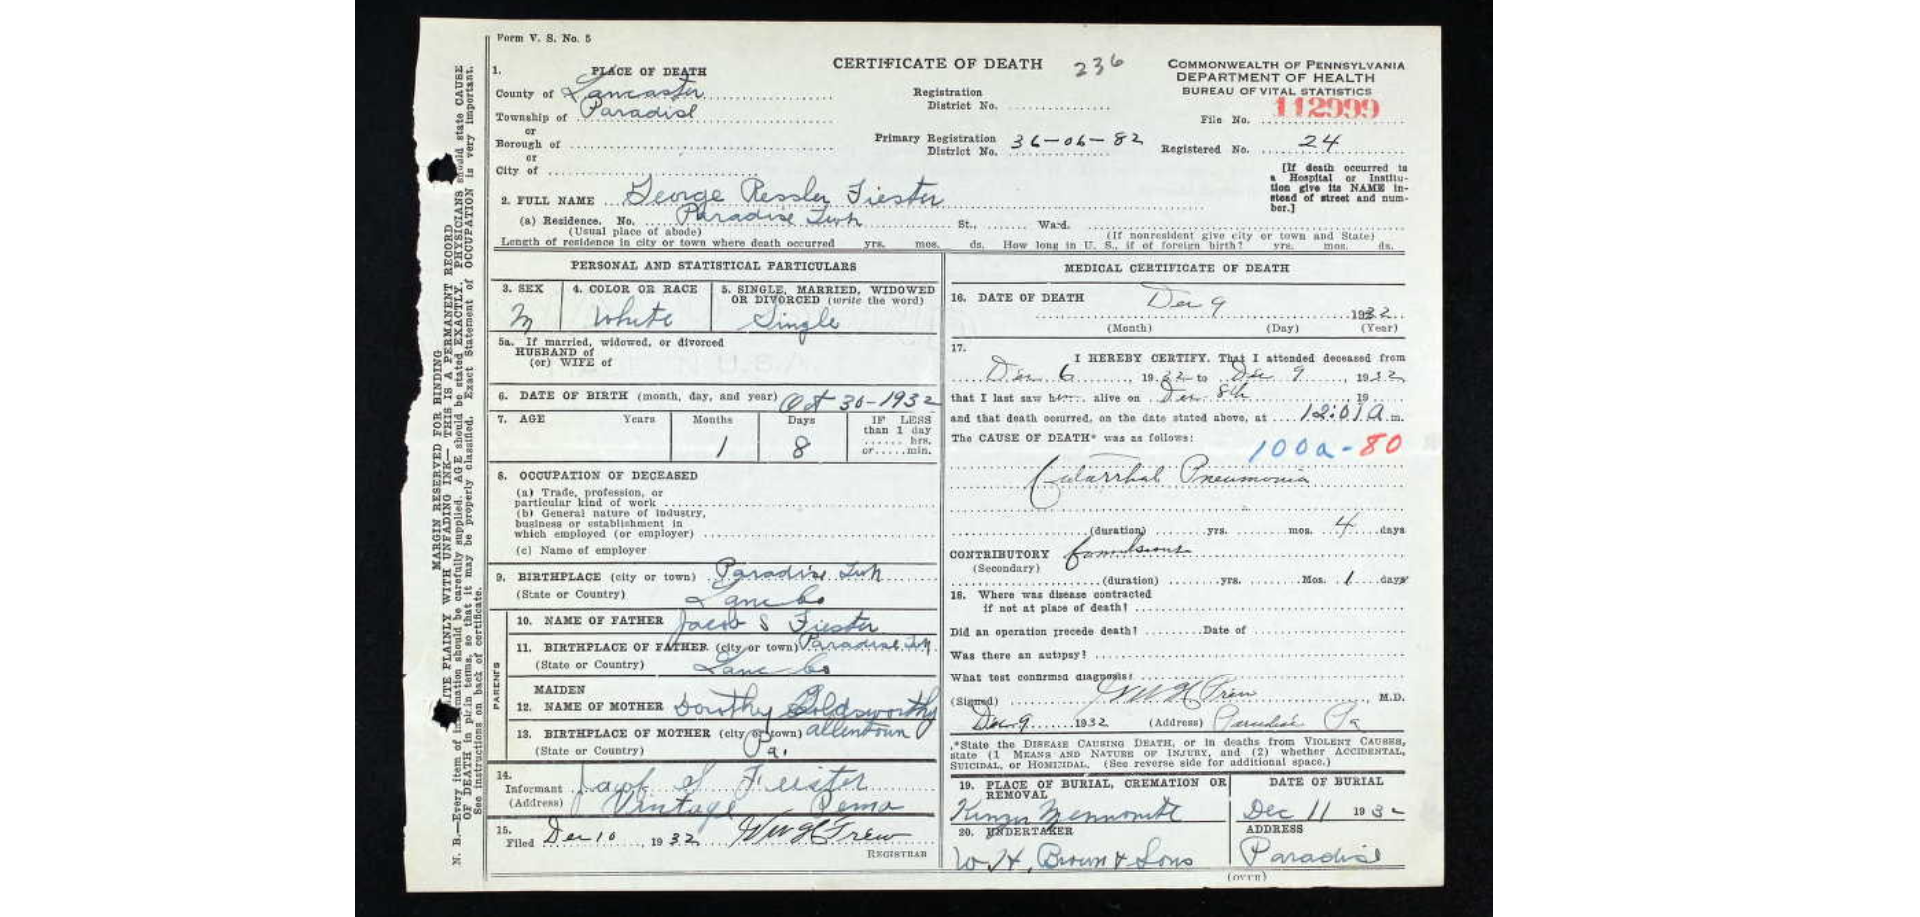 Form V. S. No. 5
CERTIFICATE OF DEATH 236
COMMONWEALTH OF PENNSYLVANIA
DEPARTMENT OF HEALTH
BUREAU OF VITAL STATISTICS
File No. 112999
Registered No. 24
[If death occurred in
a Hospital or Institu-
tion give its NAME in-
stead of street and num-
ber.]
1. PLACE OF DEATH
County of Lancaster
Township of Paradise
or
Borough of
or
City of
Registration
District No.
Primary Registration
District No. 36-06-82
2. FULL NAME George Ressler Fiester
(a) Residence. No. Paradise Twp St., Ward.
(Usual place of abode) (If nonresident give city or town and State)
Length of residence in city or town where death occurred yrs. mos. ds. How long in U. S., if of foreign birth? yrs. mos. ds.
PERSONAL AND STATISTICAL PARTICULARS
3. SEX 4. COLOR OR RACE 5. SINGLE, MARRIED, WIDOWED
OR DIVORCED (write the word)
M White Single
5a. If married, widowed, or divorced
HUSBAND of
(or) WIFE of
6. DATE OF BIRTH (month, day, and year) Oct 30-1932
7. AGE Years Months Days IF LESS
than 1 day
hrs.
or min.
1 8
8. OCCUPATION OF DECEASED
(a) Trade, profession, or
particular kind of work
(b) General nature of industry,
business or establishment in
which employed (or employer)
(c) Name of employer
9. BIRTHPLACE (city or town) Paradise Twp
(State or Country) Lanc Co
PARENTS
10. NAME OF FATHER Jacob S Fiester
11. BIRTHPLACE OF FATHER (city or town) Paradise Twp.
(State or Country) Lanc Co
MAIDEN
12. NAME OF MOTHER Dorothy Goldsworthy
13. BIRTHPLACE OF MOTHER (city or town) Allentown
(State or Country) Pa.
14.
Informant Jacob S Fiester
(Address) Vintage Penna
15.
Filed Dec 10, 1932 Wm H Frew
REGISTRAR
MEDICAL CERTIFICATE OF DEATH
16. DATE OF DEATH Dec 9 1932
(Month) (Day) (Year)
17.
I HEREBY CERTIFY, That I attended deceased from
Dec 6, 1932 to Dec 9, 1932
that I last saw him alive on Dec 8th, 19
and that death occurred, on the date stated above, at 12:01 A m.
The CAUSE OF DEATH* was as follows:
100a-80
Catarrhal Pneumonia
(duration) yrs. mos. 4 days
CONTRIBUTORY Convulsions
(Secondary)
(duration) yrs. Mos. 1 days
18. Where was disease contracted
if not at place of death?
Did an operation precede death? Date of
Was there an autopsy?
What test confirmed diagnosis?
(Signed) Wm H Frew, M.D.
Dec 9 1932 (Address) Paradise Pa
*State the DISEASE CAUSING DEATH, or in deaths from VIOLENT CAUSES,
state (1 MEANS AND NATURE OF INJURY, and (2) whether ACCIDENTAL,
SUICIDAL, or HOMICIDAL. (See reverse side for additional space.)
19. PLACE OF BURIAL, CREMATION OR
REMOVAL
Kinzer Mennonite
DATE OF BURIAL
Dec 11 1932
20. UNDERTAKER
W. H. Brown & Sons
ADDRESS
Paradise
(OVER)
MARGIN RESERVED FOR BINDING
PLAINLY WITH UNFADING INK—THIS IS A PERMANENT RECORD
N. B.—Every item of information should be carefully supplied. AGE should be stated EXACTLY. PHYSICIANS should state CAUSE
OF DEATH in plain terms, so that it may be properly classified. Exact Statement of OCCUPATION is very important.
See instructions on back of certificate.